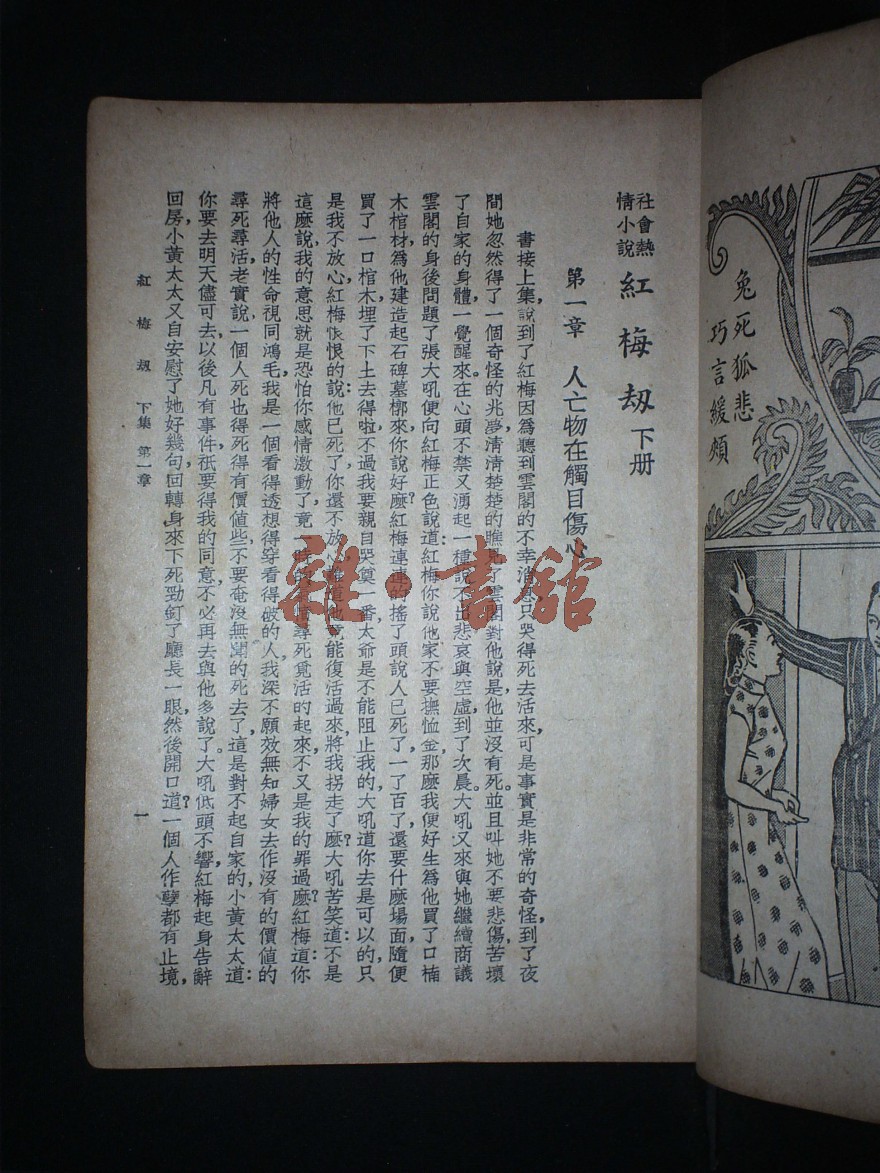 兔死狐悲
巧言緩頰
社會熱
情小說
紅梅刼 下册
第一章 人亡物在觸目傷心
書接上集，說到了紅梅因爲聽到雲閣的不幸消息只哭得死去活來，可是事實是非常的奇怪，到了夜
間她忽然得了一個奇怪的兆夢，清清楚楚的瞧見了雲閣對他說是他並沒有死。並且叫她不要悲傷苦壞
了自家的身體，一覺醒來，在心頭不禁又湧起一種說不出悲哀與空虛，到了次晨大吼又來與她繼續商議
雲閣的身後問題了，張大吼便向紅梅正色說道：紅梅你說他家不要撫恤金那麽我便好生爲他買了口楠
木棺材，爲他建造起石碑墓槨來，你說好麽？紅梅連連的搖了頭說，人已死了，一了百了，還要什麽塲面，隨便
買了一口棺木埋了下土去得啦，不過我要親自哭奠一番，太爺是不能阻止我的，大吼道，你去是可以的，只
是我不放心，紅梅恨恨的說：他已死了，你還不放心，難道他竟能復活過來，將我拐走了麽？大吼苦笑道：不是
這麽說，我的意思就是恐怕你感情激動了，竟 時的 情尋死覓活的起來，不又是我的罪過麽？紅梅道：你
將他人的性命視同鴻毛，我是一個看得透想得穿看得破的人，我深不願效無知婦女去作沒有的價値的
尋死尋活，老實說，一個人死也得死得有價値些，不要奄沒無聞的死去了，這是對不起自家的，小黃太太道：
你要去明天儘可去，以後凡有事件，祇要得我的同意，不必再去與他多說了。大吼低頭不響，紅梅起身告辭
回房，小黃太太又自安慰了她好幾句，回轉身來，下死勁釘了廳長一眼，然後開口道？一個人作孽都有止境，
紅梅刼 下集 第一章
一
雜·書舘